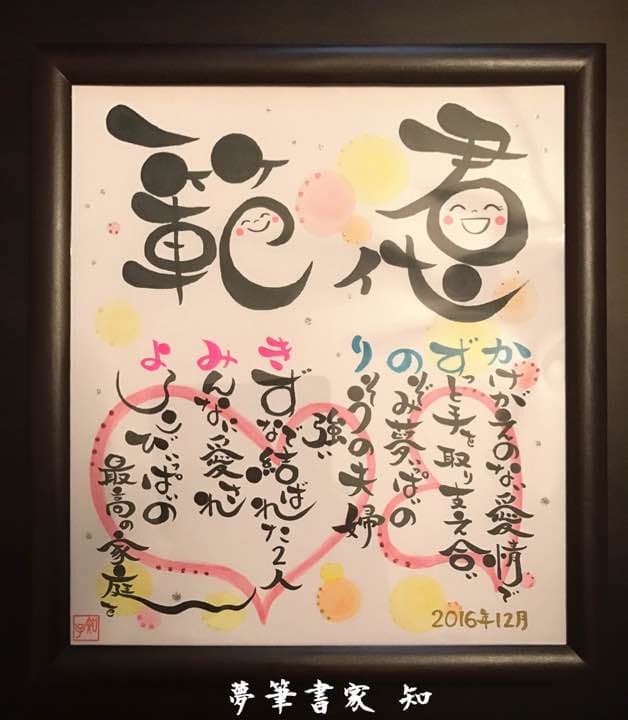 君代
一範
かけがえのない愛情で
ずっと手を取り支え合い
のぞみ夢いっぱいの
りそうの夫婦
強い
きずなで結ばれた2人
みんなに愛され
よろこびいっぱいの
最高の家庭を
2016年12月
夢筆書家 知